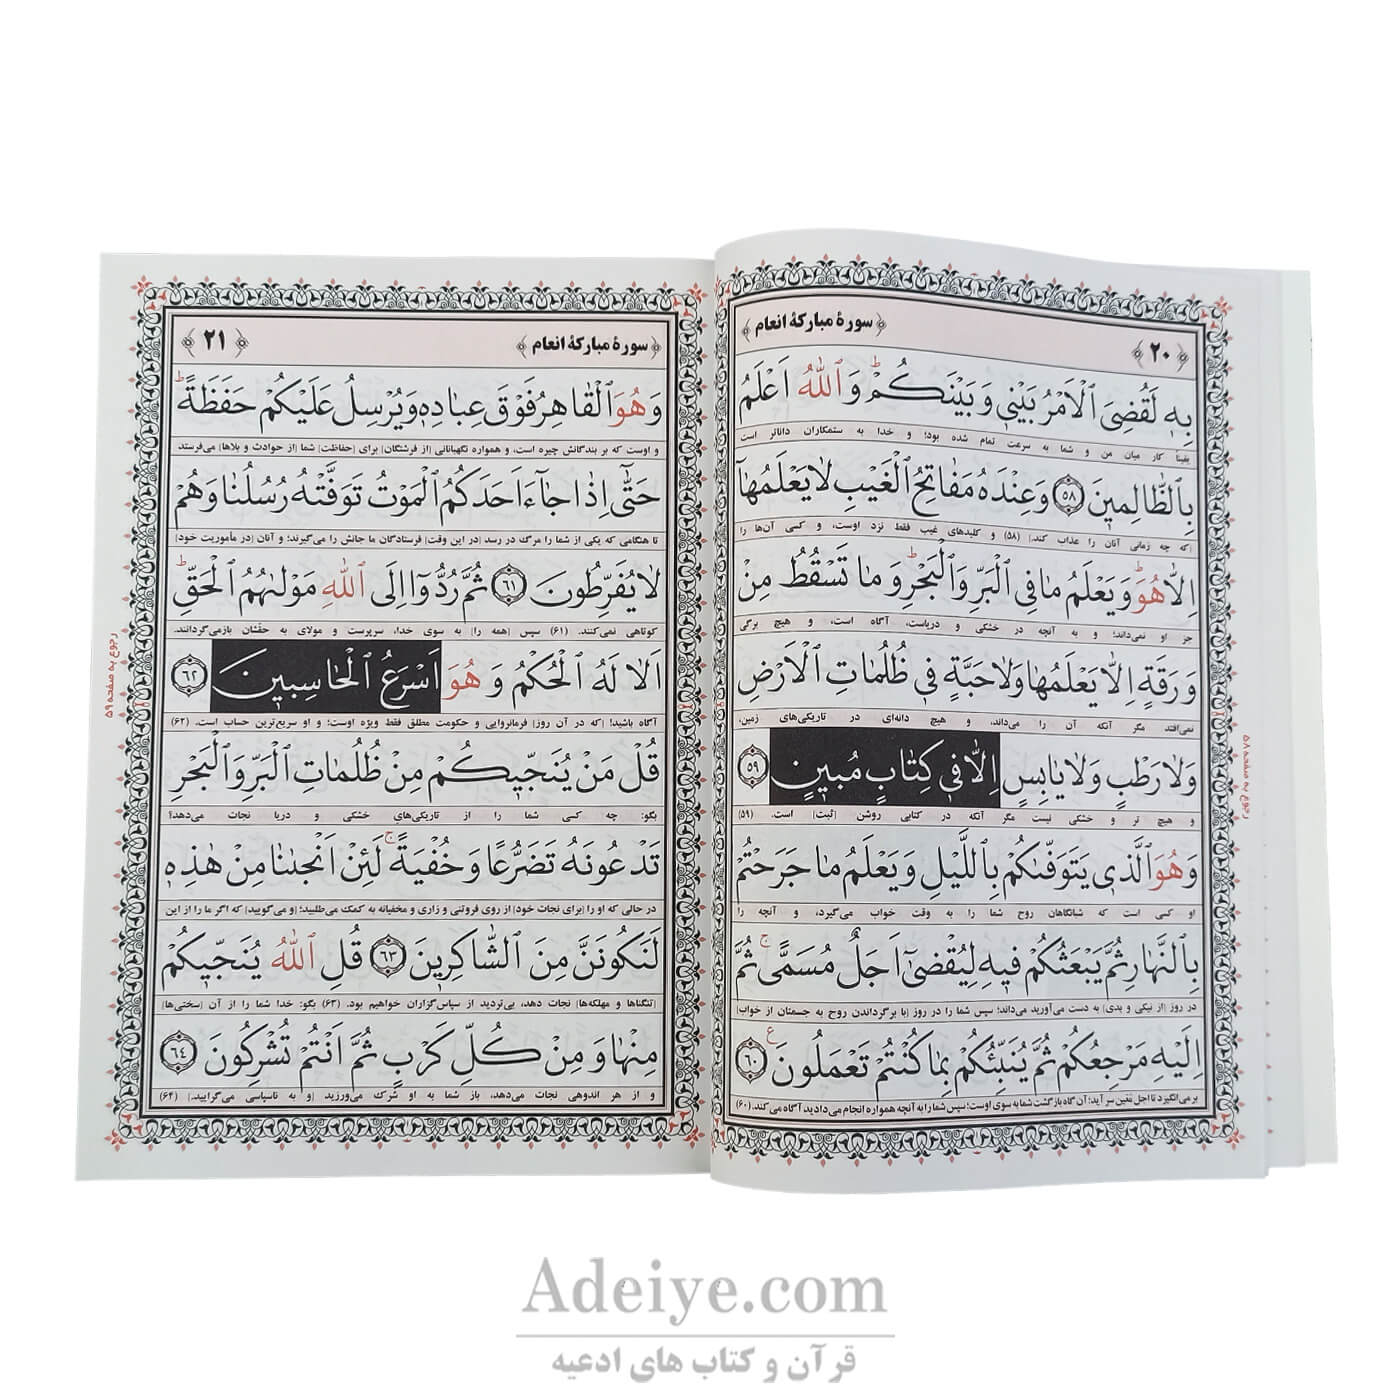 ﴿۲۰﴾ ﴿سورهٔ مبارکهٔ انعام﴾
بِهٖ لَقُضِیَ الْاَمْرُ بَیْنٖی وَ بَیْنَکُمْ ؕ وَ اللّٰهُ اَعْلَمُ
یقیناً کار میان من و شما به سرعت تمام شده بود؛ و خدا به ستمکاران داناتر است
بِالظّٰالِمٖینَ ﴿۵۸﴾ وَ عِنْدَهُ مَفٰاتِحُ الْغَیْبِ لاٰ یَعْلَمُهٰٓا
[که چه زمانی آنان را عذاب کند.] (۵۸) و کلیدهای غیب فقط نزد اوست، و کسی آن‌ها را
اِلاّٰ هُوَ ؕ وَ یَعْلَمُ مٰا فِی الْبَرِّ وَ الْبَحْرِ ؕ وَ مٰا تَسْقُطُ مِنْ
جز او نمی‌داند؛ و به آنچه در خشکی و دریاست، آگاه است، و هیچ برگی
وَرَقَةٍ اِلاّٰ یَعْلَمُهٰا وَ لاٰ حَبَّةٍ فٖی ظُلُمٰاتِ الْاَرْضِ
نمی‌افتد مگر آنکه آن را می‌داند، و هیچ دانه‌ای در تاریکی‌های زمین،
وَ لاٰ رَطْبٍ وَ لاٰ یٰابِسٍ اِلاّٰ فٖی کِتٰابٍ مُبٖینٍ ﴿۵۹﴾
و هیچ تر و خشکی نیست مگر آنکه در کتابی روشن [ثبت] است. (۵۹)
وَ هُوَ الَّذٖی یَتَوَفّٰاکُمْ بِاللَّیْلِ وَ یَعْلَمُ مٰا جَرَحْتُمْ
او کسی است که شبانگاهان روح شما را به وقت خواب می‌گیرد، و آنچه را
بِالنَّهٰارِ ثُمَّ یَبْعَثُکُمْ فٖیهِ لِیُقْضٰٓی اَجَلٌ مُسَمًّی ۚ ثُمَّ
در روز [از نیکی و بدی] به دست می‌آورید می‌داند؛ سپس شما را در روز [با برگرداندن روح به جسمتان از خواب]
اِلَیْهِ مَرْجِعُکُمْ ثُمَّ یُنَبِّئُکُمْ بِمٰا کُنْتُمْ تَعْمَلُونَ ﴿۶۰﴾ ع
برمی‌انگیزد تا اجل معین سر آید؛ آن گاه بازگشت شما به سوی اوست؛ سپس شما را به آنچه همواره انجام می‌دادید آگاه می‌کند. (۶۰)
رجوع به صفحه ۵۸
﴿سورهٔ مبارکهٔ انعام﴾ ﴿۲۱﴾
وَ هُوَ الْقٰاهِرُ فَوْقَ عِبٰادِهٖ وَ یُرْسِلُ عَلَیْکُمْ حَفَظَةً ؕ
و اوست که بر بندگانش چیره است، و همواره نگهبانانی [از فرشتگان] برای [حفاظت] شما [از حوادث و بلاها] می‌فرستد.
حَتّٰٓی اِذٰا جٰآءَ اَحَدَکُمُ الْمَوْتُ تَوَفَّتْهُ رُسُلُنٰا وَ هُمْ
تا هنگامی که یکی از شما را مرگ در رسد [در این وقت] فرستادگان ما جانش را می‌گیرند؛ و آنان [در مأموریت خود]
لاٰ یُفَرِّطُونَ ﴿۶۱﴾ ثُمَّ رُدُّوٓا اِلَی اللّٰهِ مَوْلٰهُمُ الْحَقِّ ؕ
کوتاهی نمی‌کنند. (۶۱) سپس [همه را] به سوی خدا، سرپرست و مولای به حقّشان بازمی‌گردانند.
اَلاٰ لَهُ الْحُکْمُ وَ هُوَ اَسْرَعُ الْحٰاسِبٖینَ ﴿۶۲﴾
آگاه باشید! [که در آن روز] فرمانروایی و حکومت مطلق فقط ویژه اوست؛ و او سریع‌ترین حساب است. (۶۲)
قُلْ مَنْ یُنَجّٖیکُمْ مِنْ ظُلُمٰاتِ الْبَرِّ وَ الْبَحْرِ
بگو: چه کسی شما را از تاریکی‌های خشکی و دریا نجات می‌دهد؟
تَدْعُونَهُ تَضَرُّعًا وَ خُفْیَةً ۚ لَئِنْ اَنْجٰنٰا مِنْ هٰذِهٖ
در حالی که او را [برای نجات خود] از روی فروتنی و زاری و مخفیانه به کمک می‌طلبید؛ [و می‌گویید] که اگر ما را از این
لَنَکُونَنَّ مِنَ الشّٰاکِرٖینَ ﴿۶۳﴾ قُلِ اللّٰهُ یُنَجّٖیکُمْ
[تنگناها و مهلکه‌ها] نجات دهد، بی‌تردید از سپاس‌گزاران خواهیم بود. (۶۳) بگو: خدا شما را از آن [سختی‌ها]
مِنْهٰا وَ مِنْ کُلِّ کَرْبٍ ثُمَّ اَنْتُمْ تُشْرِکُونَ ﴿۶۴﴾
و از هر اندوهی نجات می‌دهد، باز شما به او شرک می‌ورزید [و به ناسپاسی می‌گرایید.] (۶۴)
رجوع به صفحه ۵۹
Adeiye.com
قرآن و کتاب های ادعیه